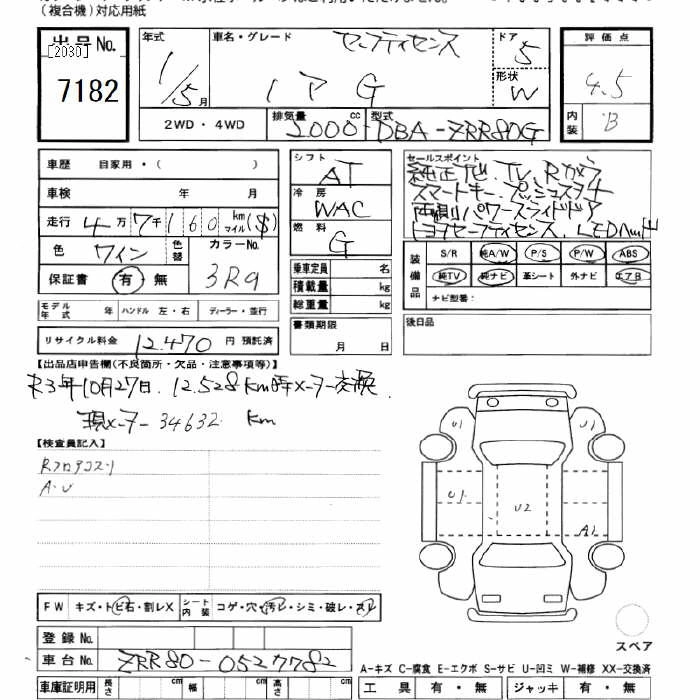 (複合機)対応用紙
出品No.
[2030]
7182
年式
1/5月
車名・グレード
セーフティセンス
ノア G
ドア
5
形状
W
評価点
4.5
内装
B
2WD・4WD
排気量
2000 cc
型式
DBA-ZRR80G
車歴 自家用・( )
車検 年 月
走行 4万7千160 km マイル ($)
色 ワイン 色替 カラーNo. 3R9
保証書 有・無
モデル年式 年 ハンドル 左・右 ディーラー・並行
リサイクル料金 12.470 円 預託済
シフト
AT
冷房
WAC
燃料
G
乗車定員 名
積載量 kg
総重量 kg
書類期限
月 日
セールスポイント
純正ナビ.TV.Rカメラ
スマートキー.プッシュスタート
両側パワースライドドア
トヨタセーフティセンス.LEDヘッド
装備品
S/R 純A/W P/S P/W ABS
純TV 純ナビ 革シート 外ナビ エアB
ナビ型番:
後日品
【出品店申告欄(不良箇所・欠品・注意事項等)】
R3年10月27日.12.528km時メーター交換.
現メーター34632 km
【検査員記入】
RフロアコスリA・U
FW キズ・トビ石・割レX シート内装 コゲ・穴・汚レ・シミ・破レ・スレ
登録No.
車台No. ZRR80-0527782
車庫証明用 長さ cm 幅 cm 高さ cm
U1
U1
U1
U2
A1
スペア
A-キズ C-腐食 E-エクボ S-サビ U-凹ミ W-補修 XX-交換済
工具 有・無 ジャッキ 有・無